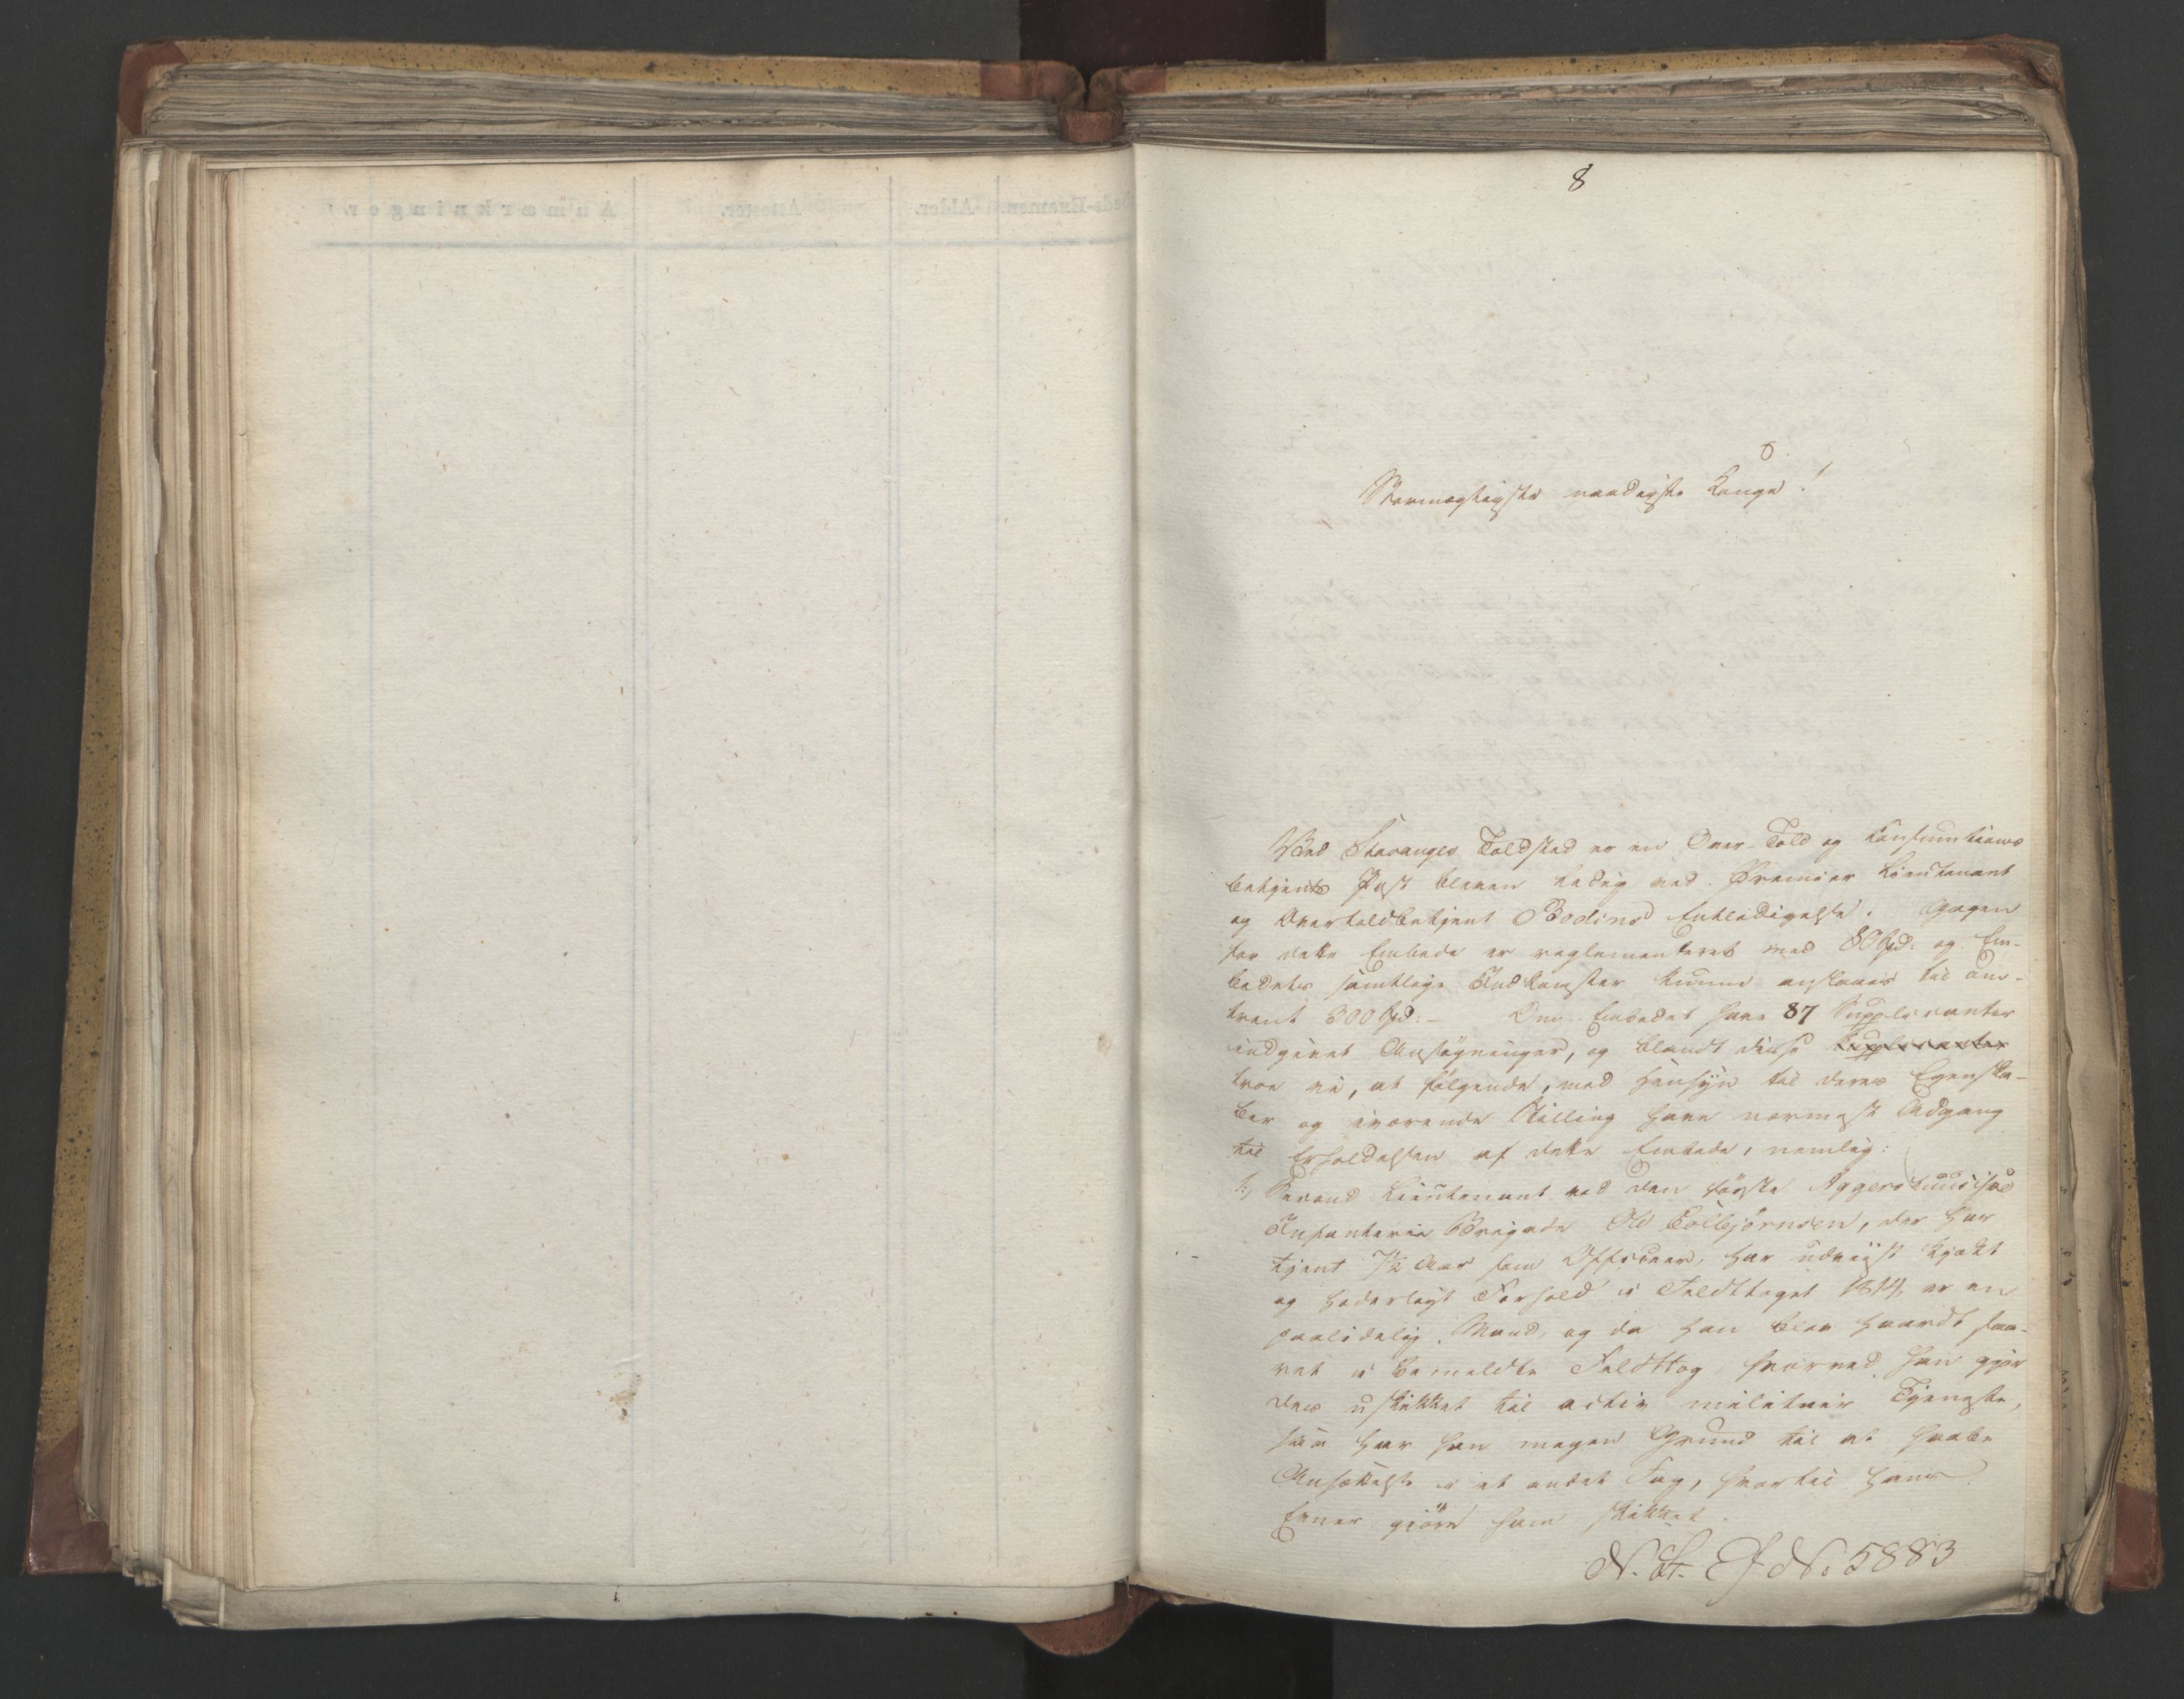 8
Stormægtigste naadigste Konge!
Ved Stavanger Toldsted er en Over-Told og Consumtions
betjents Post bleven ledig ved Premier Lieutenant
og Overtoldbetjent Bodins Entledigelse. Gagen
for dette Embede er reglementeret med 80 Spd. og Em-
bedets samtlige Indkomster kunne anslaaes til om-
trent 300 Spd. – Om Embedet have 87 Supplicanter
indgivet Ansøgninger, og blandt disse Supplicanter
troe vi, at følgende, med Hensyn til deres Egenska-
ber og værende Stilling have nærmest Adgang
til Erholdelsen af dette Embede, nemlig:
1., Second Lieutenant ved den første Aggershuusiske
Infanterie Brigade Ole Colbjørnsen, der har
tjent 7½ Aar som Officeer, har udviist kjækt
og hæderligt Forhold i Feldttoget 1814, er en
paalidelig Mand, og da han blev haardt saa-
ret i bemeldte Feldttog hvorved han gjør
des uskikket til activ militair Tjeneste,
saa har han megen Grund til at haabe
Ansættelse i et andet Fag, hvortil hans
Evner gjøre ham skikket.
N. St. Ef. No. 5883
Anmærkninger.
Attester.
Alder.
beds-Examen.